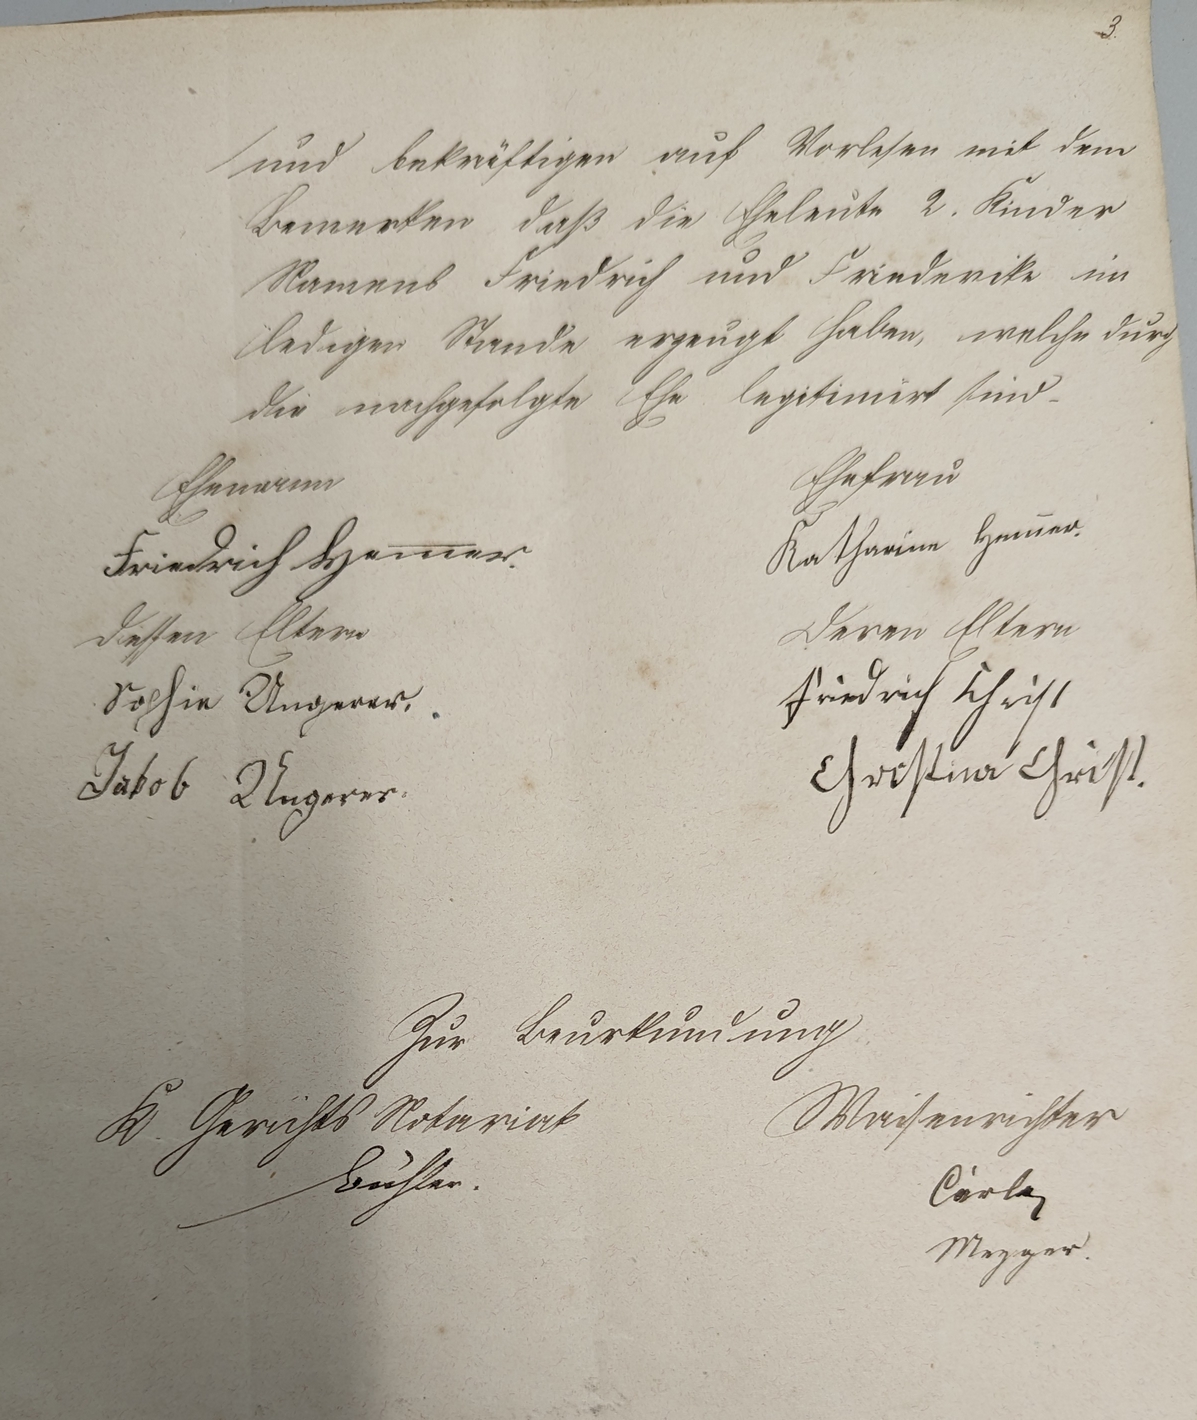 3.
und bekräftigen auf Vorlesen mit dem
Bemerken daß die Eheleute 2. Kinder
Namens Friedrich und Friederike im
ledigen Stande erzeugt haben, welche durch
die nachgefolgte Ehe legitimirt sind.
Ehemann Ehefrau
Friedrich Hem̄er. Katharine Hem̄er.
dessen Eltern Deren Eltern
Sophie Ungerer. Friedrich Christ
Jakob Ungerer. Christina Christ.
Zur Beurkundung
K. Gerichts Notariat Waisenrichter
Bühler.
Mezger.